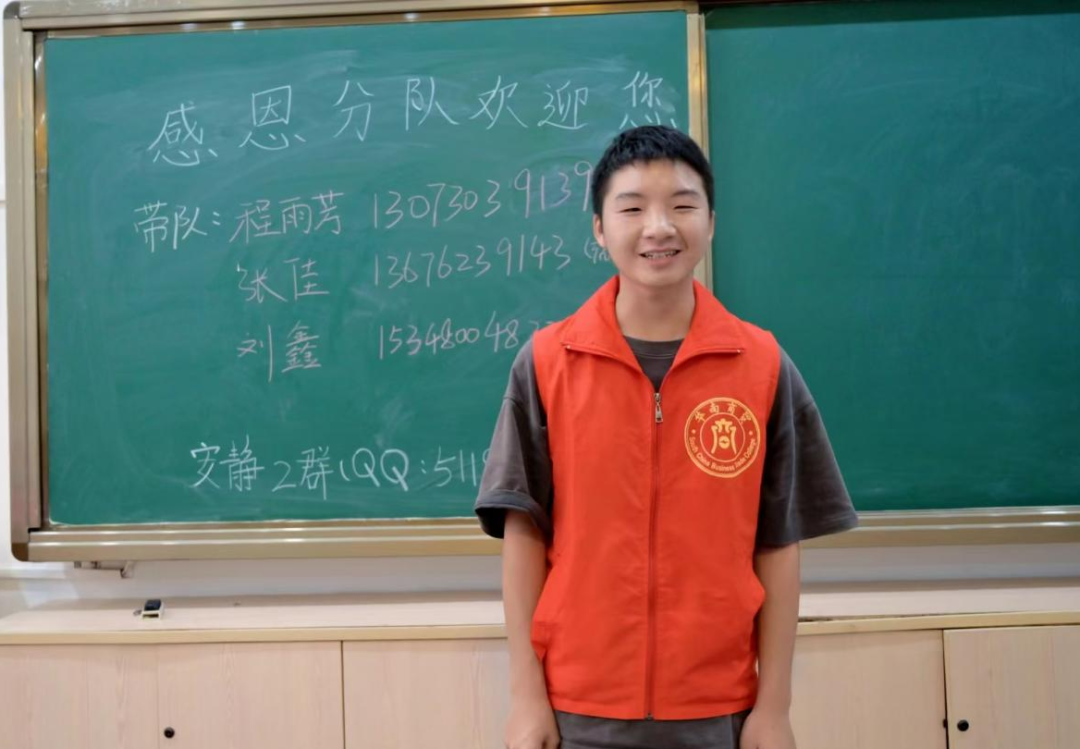 感恩分队欢迎您
带队：程雨芳 13073039139
张佳 13676239143
刘鑫 153480048
安静2群(QQ：511
South China Business Trade College